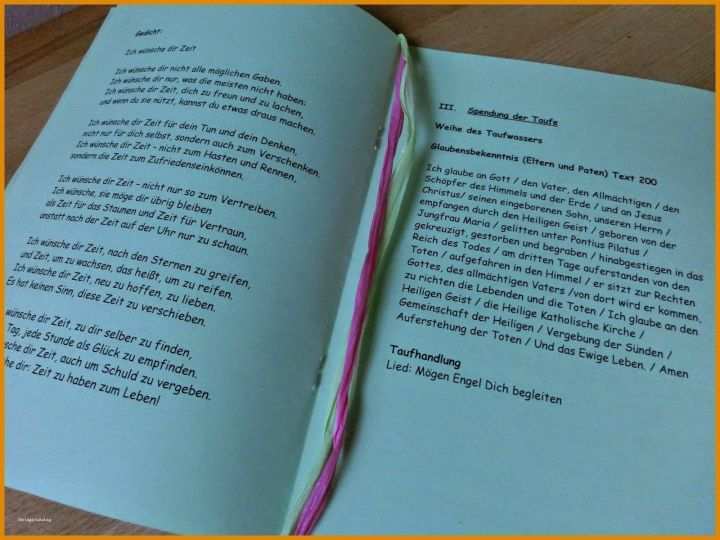 Gedicht:
Ich wünsche dir Zeit
Ich wünsche dir nicht alle möglichen Gaben.
Ich wünsche dir nur, was die meisten nicht haben:
Ich wünsche dir Zeit, dich zu freun und zu lachen,
und wenn du sie nützt, kannst du etwas draus machen.
Ich wünsche dir Zeit für dein Tun und dein Denken,
nicht nur für dich selbst, sondern auch zum Verschenken.
Ich wünsche dir Zeit – nicht zum Hasten und Rennen,
sondern die Zeit zum Zufriedenseinkönnen.
Ich wünsche dir Zeit – nicht nur so zum Vertreiben.
Ich wünsche, sie möge dir übrig bleiben
als Zeit für das Staunen und Zeit für Vertraun,
anstatt nach der Zeit auf der Uhr nur zu schaun.
Ich wünsche dir Zeit, nach den Sternen zu greifen,
und Zeit, um zu wachsen, das heißt, um zu reifen.
Ich wünsche dir Zeit, neu zu hoffen, zu lieben.
Es hat keinen Sinn, diese Zeit zu verschieben.
wünsche dir Zeit, zu dir selber zu finden,
Tag, jede Stunde als Glück zu empfinden.
sche dir Zeit, auch um Schuld zu vergeben.
he dir: Zeit zu haben zum Leben!
III. Spendung der Taufe
Weihe des Taufwassers
Glaubensbekenntnis (Eltern und Paten) Text 200
Ich glaube an Gott / den Vater, den Allmächtigen / den
Schöpfer des Himmels und der Erde / und an Jesus
Christus/ seinen eingeborenen Sohn, unseren Herrn /
empfangen durch den Heiligen Geist / geboren von der
Jungfrau Maria / gelitten unter Pontius Pilatus /
gekreuzigt, gestorben und begraben / hinabgestiegen in das
Reich des Todes / am dritten Tage auferstanden von den
Toten / aufgefahren in den Himmel / er sitzt zur Rechten
Gottes, des allmächtigen Vaters /von dort wird er kommen,
zu richten die Lebenden und die Toten / Ich glaube an den
Heiligen Geist / die Heilige Katholische Kirche /
Gemeinschaft der Heiligen / Vergebung der Sünden /
Auferstehung der Toten / Und das Ewige Leben. / Amen
Taufhandlung
Lied: Mögen Engel Dich begleiten